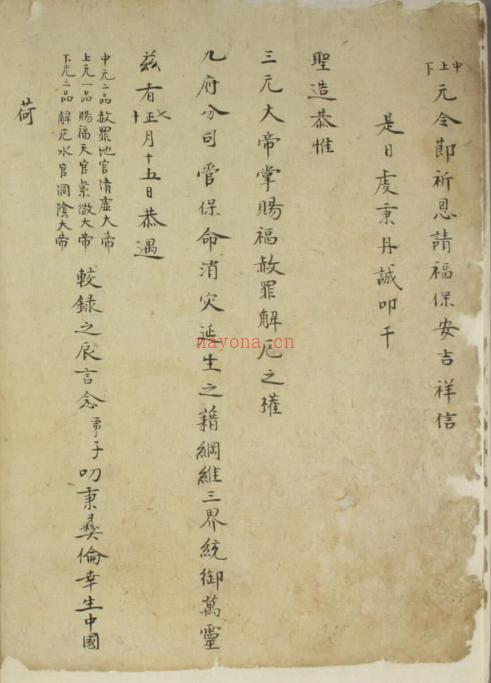 中上下元令節祈恩請福保安吉祥信
是日虔秉丹誠叩干
聖造恭惟
三元大帝掌賜福赦罪解厄之權
九府分司管保命消灾延生之藉綱維三界統御萬靈
兹有七正十月十五日恭遇
中元二品赦罪地官清虛大帝
上元一品賜福天官紫微大帝
下元三品解厄水官洞陰大帝
較録之辰言念弟子叨秉彝倫幸生中國
荷
nayona.cn